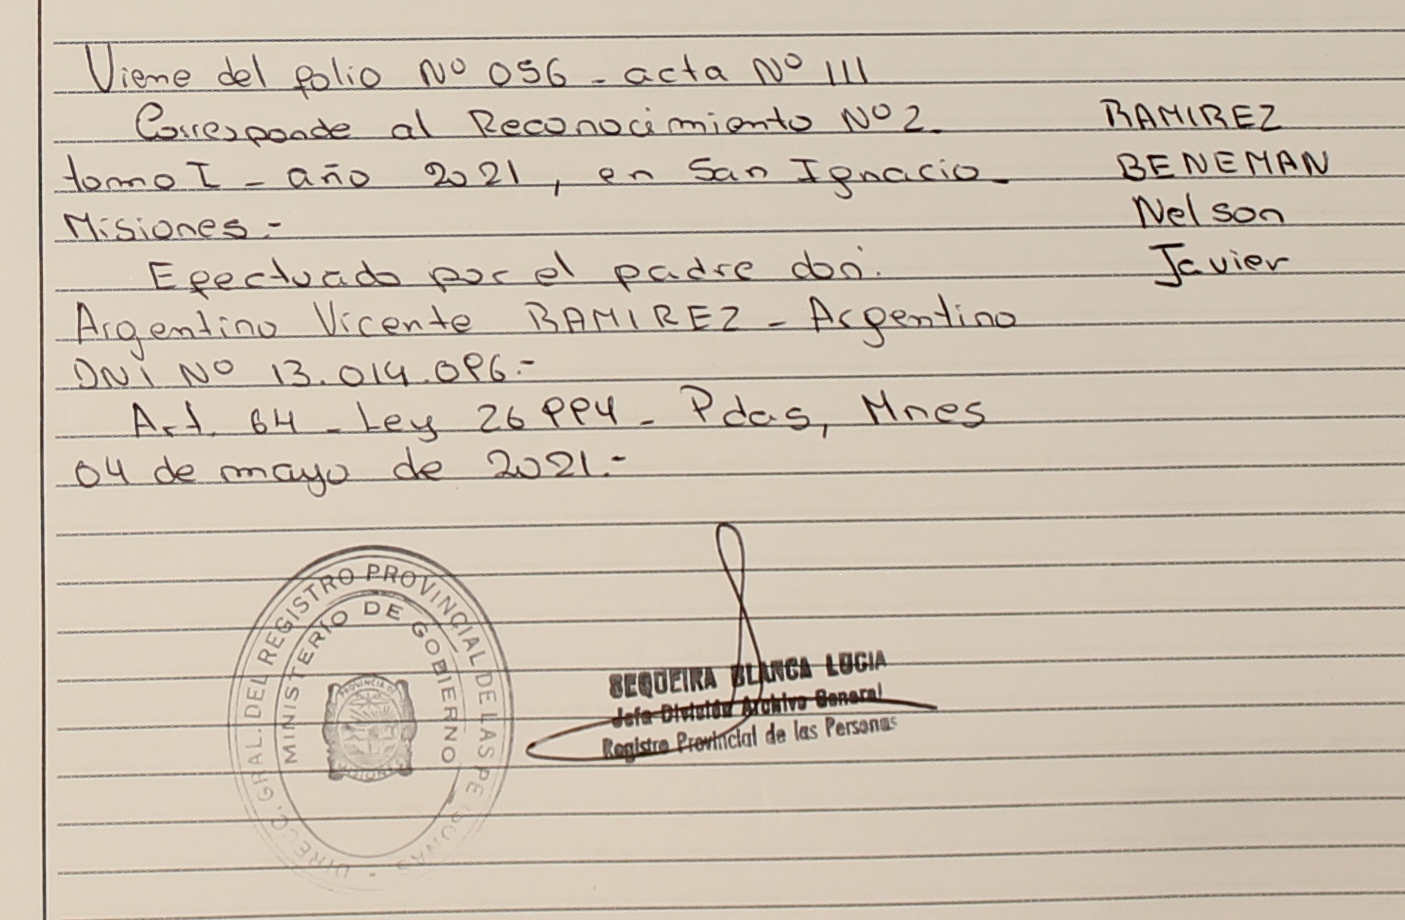 Viene del folio Nº 056 - acta Nº 111
Corresponde al Reconocimiento Nº 2.
tomo I - año 2021, en San Ignacio -
Misiones.-
Efectuado por el padre don:
Argentino Vicente RAMIREZ - Argentino
DNI Nº 13.014.096.-
Art. 64 - Ley 26994 - Pdas, Mnes
04 de mayo de 2021.-
RAMIREZ
BENEMAN
Nelson
Javier
DIRECC. GRAL. DEL REGISTRO PROVINCIAL DE LAS PERSONAS
MINISTERIO DE GOBIERNO
PROVINCIA DE
MISIONES
SEQUEIRA BLANCA LUCIA
Jefa División Archivo General
Registro Provincial de las Personas